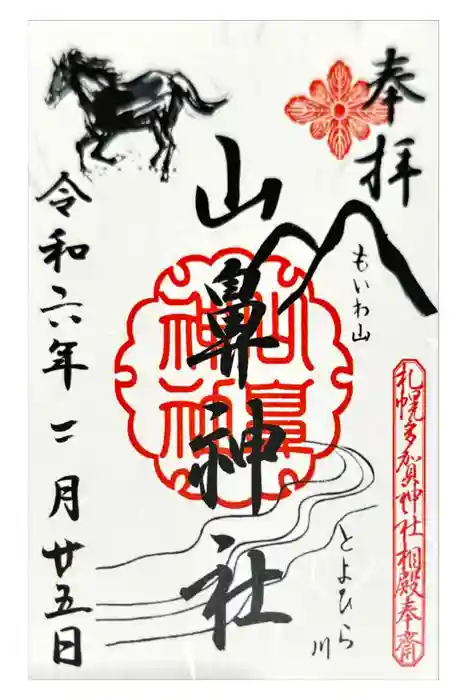 奉拝
札幌多賀神社相殿奉斎
もいわ山
とよひら
川
山鼻神社
山鼻
神社
令和六年二月廿五日